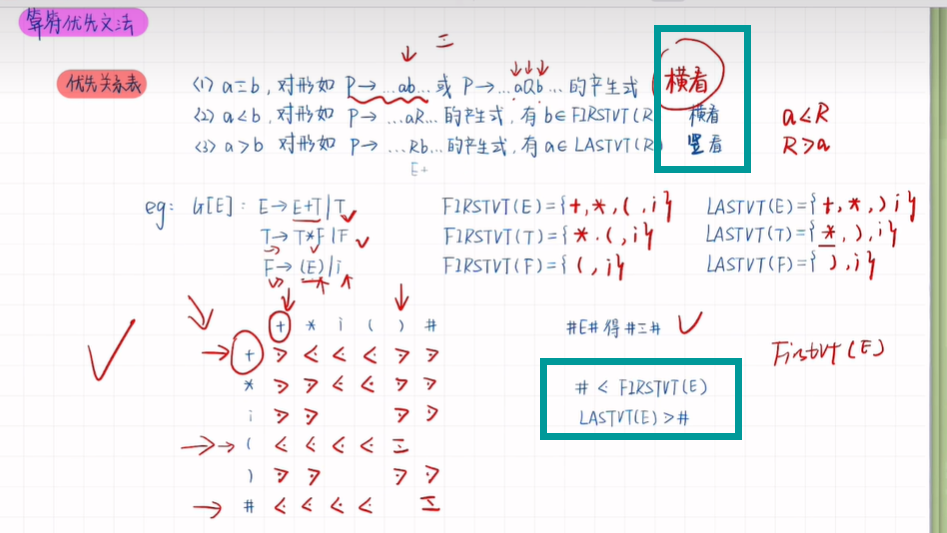 算符优先文法
优先关系表
(1) a≡b, 对形如 P→...ab... 或 P→...aQb... 的产生式 横看
(2) a<b, 对形如 P→ ...aR... 的产生式, 有 b∈FIRSTVT(R) 横看 a⋖R
(3) a>b 对形如 P→ ...Rb... 的产生式, 有 a∈LASTVT(R) 竖看 R⋗a
E+
eg: G[E]: E→E+T|T FIRSTVT(E)={+,*,(,i} LASTVT(E)={+,*,)i}
T→T*F|F FIRSTVT(T)={*.(,i} LASTVT(T)={*,),i}
F→(E)|i FIRSTVT(F)={(,i} LASTVT(F)={),i}
+ * i ( ) #
+ ⋗ ⋖ ⋖ ⋖ ⋗ ⋗
* ⋗ ⋗ ⋖ ⋖ ⋗ ⋗
i ⋗ ⋗ ⋗ ⋗
( ⋖ ⋖ ⋖ ⋖ ≡
) ⋗ ⋗ ⋗ ⋗
# ⋖ ⋖ ⋖ ⋖ ≡
#E# 得 #≡#
FirstVT(E)
# < FIRSTVT(E)
LASTVT(E)>#